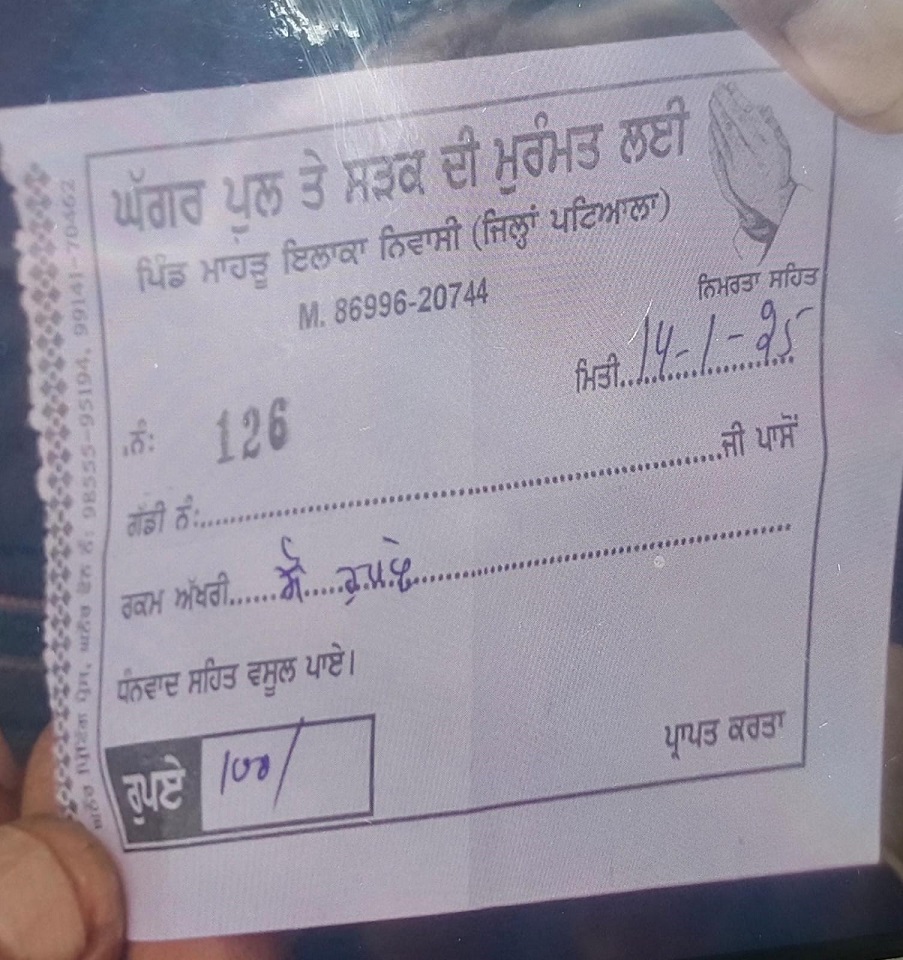 ਘੱਗਰ ਪੁਲ ਤੇ ਸੜਕ ਦੀ ਮੁਰੰਮਤ ਲਈ
ਪਿੰਡ ਮਾਹੜੂ ਇਲਾਕਾ ਨਿਵਾਸੀ (ਜਿਲ੍ਹਾਂ ਪਟਿਆਲਾ)
M. 86996-20744
ਨਿਮਰਤਾ ਸਹਿਤ
ਮਿਤੀ 14-1-25
ਨੰ: 126
ਗੱਡੀ ਨੰ: ਜੀ ਪਾਸੋਂ
ਰਕਮ ਅੱਖਰੀ ਸੌ ਰੁਪਏ
ਧੰਨਵਾਦ ਸਹਿਤ ਵਸੂਲ ਪਾਏ।
ਰੁਪਏ 100/
ਪ੍ਰਾਪਤ ਕਰਤਾ
ਪ੍ਰਿੰਟਿੰਗ ਪ੍ਰੈਸ, ਘਨੌਰ ਫੋਨ ਨੰ: 98555-95194, 99141-70462